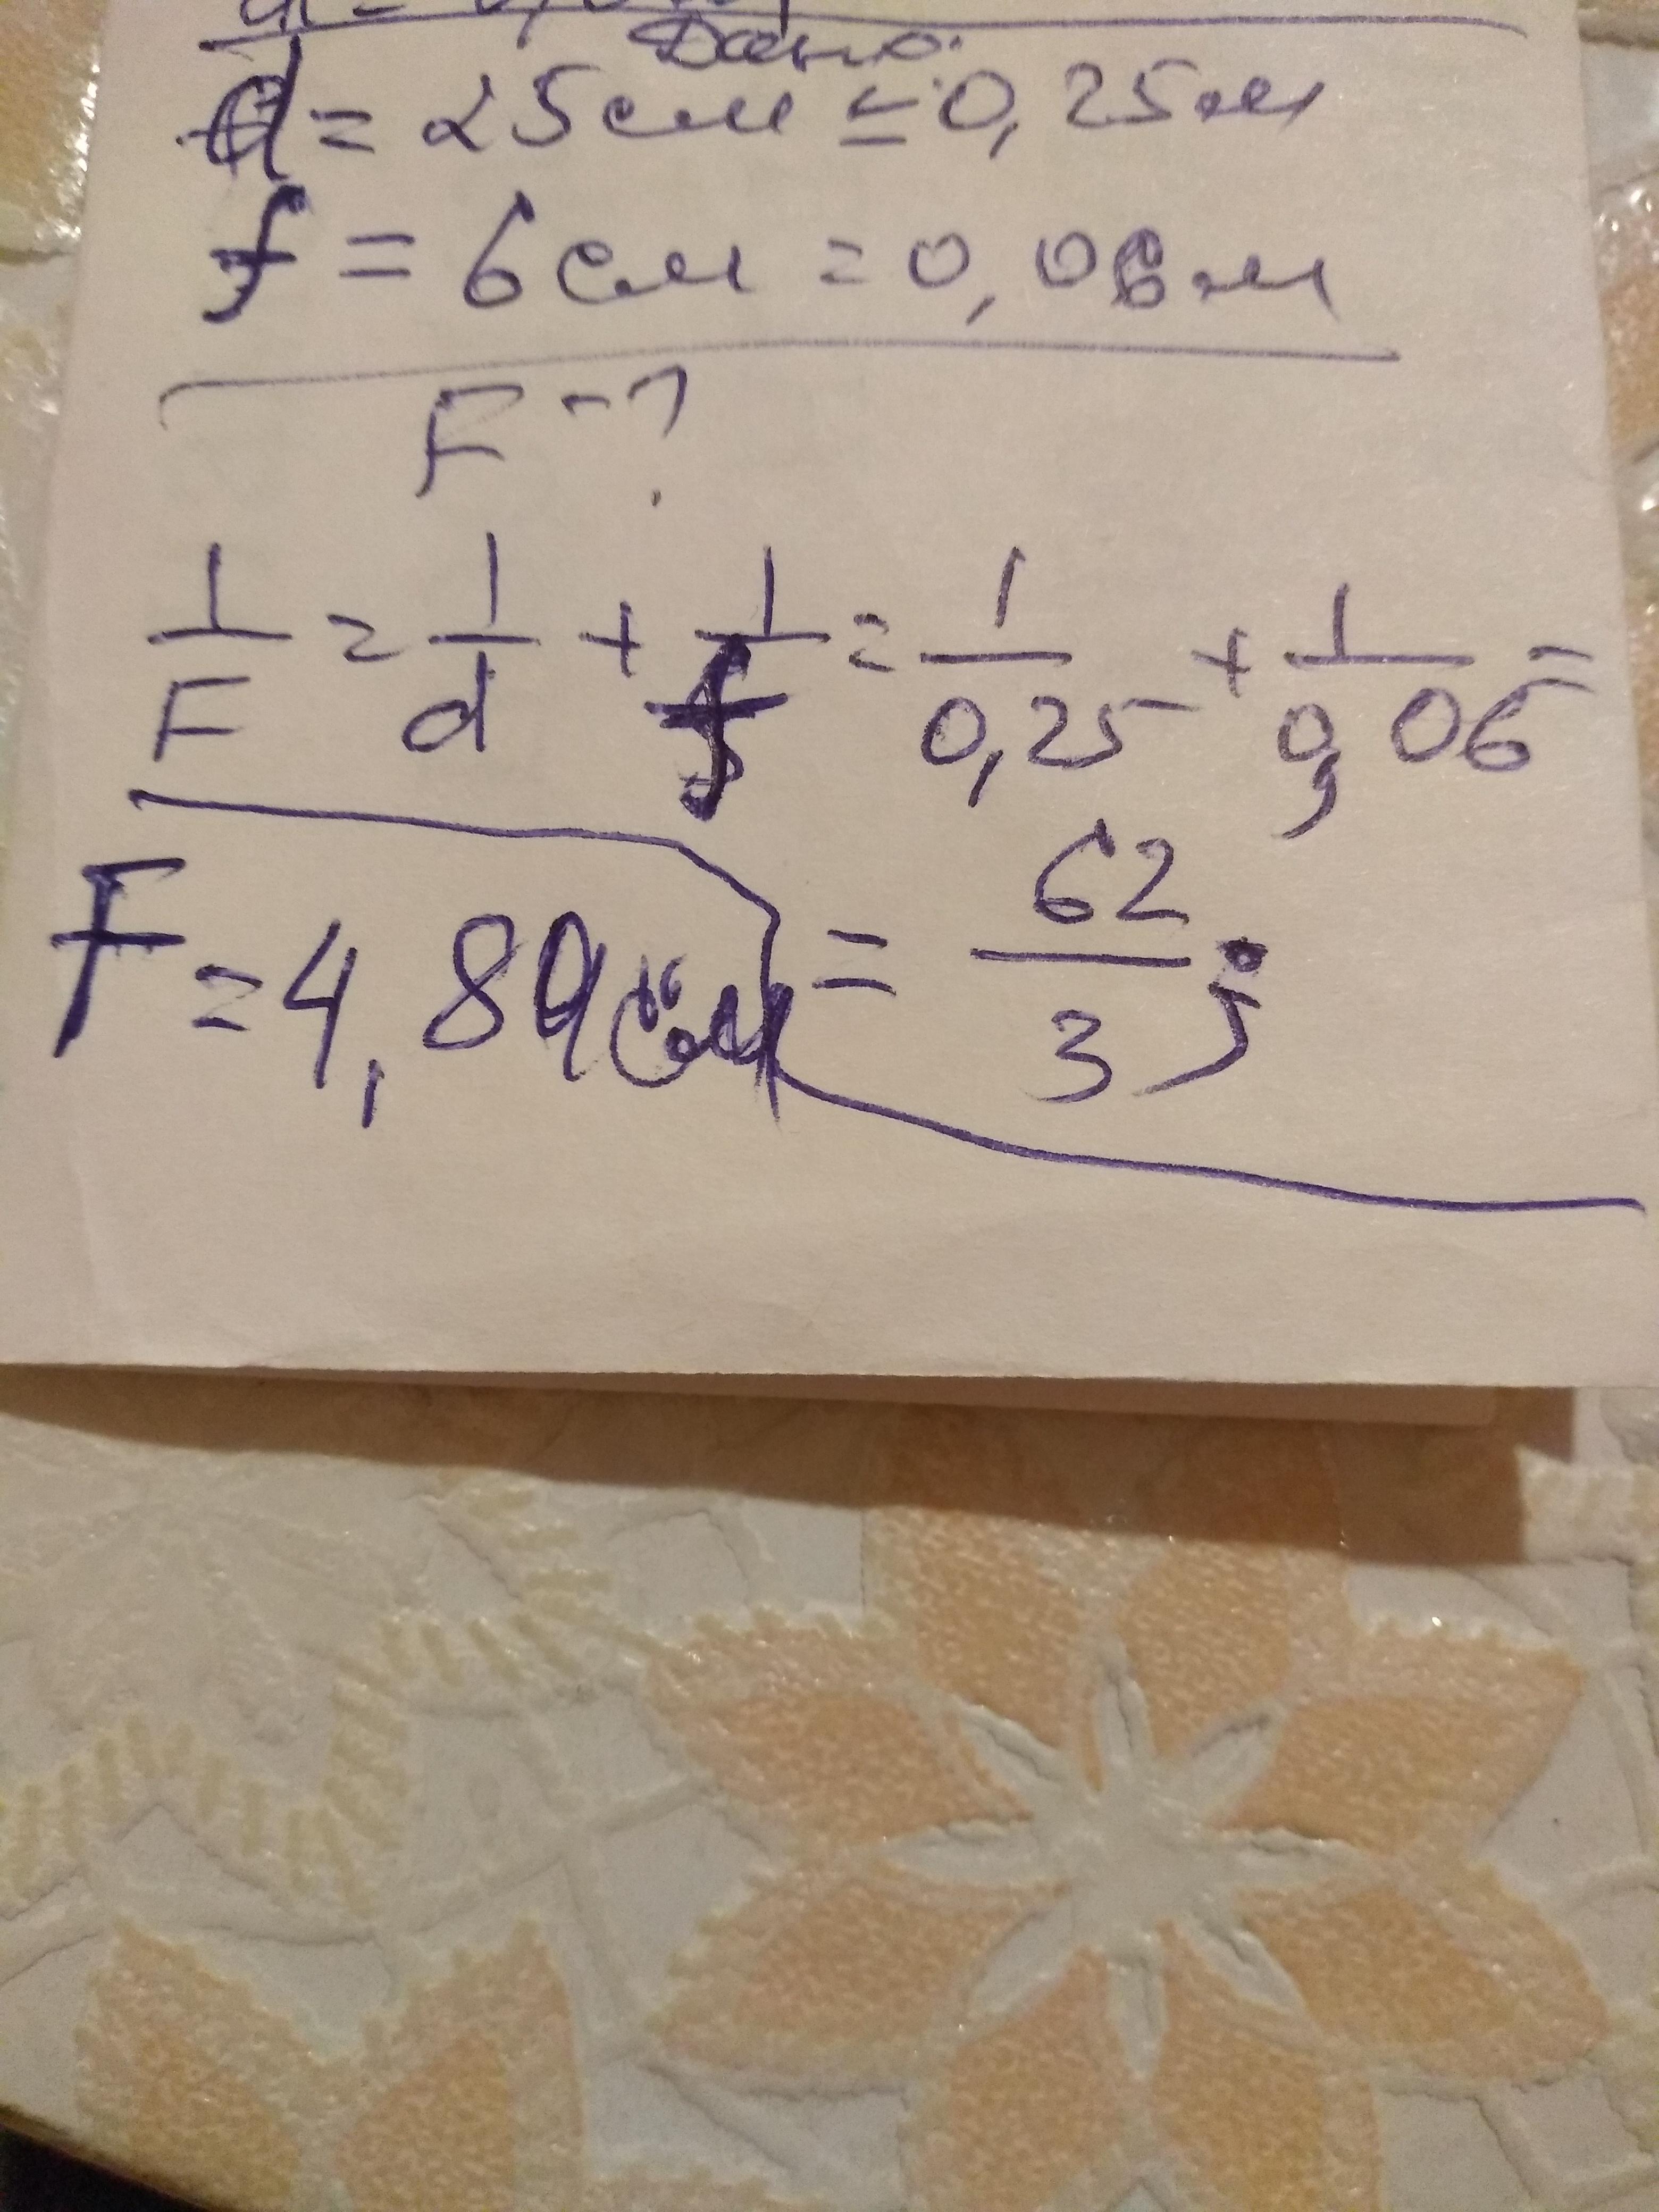 Дано:
d = 25 см = 0,25 м
f = 6 см = 0,06 м
F - ?
1/F = 1/d + 1/f = 1/0,25 + 1/0,06 =
= 62/3;
F = 4,84 см